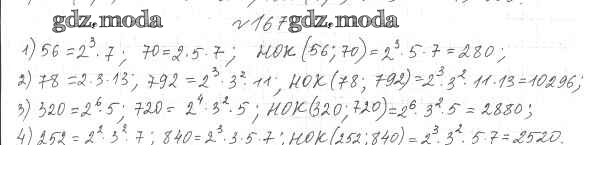 gdz.moda №167 gdz.moda
1) 56 = 2³·7; 70 = 2·5·7; НОК (56; 70) = 2³·5·7 = 280;
2) 78 = 2·3·13; 792 = 2³·3²·11; НОК (78; 792) = 2³·3²·11·13 = 10296;
3) 320 = 2⁶·5; 720 = 2⁴·3²·5; НОК (320; 720) = 2⁶·3²·5 = 2880;
4) 252 = 2²·3²·7; 840 = 2³·3·5·7; НОК (252; 840) = 2³·3²·5·7 = 2520.